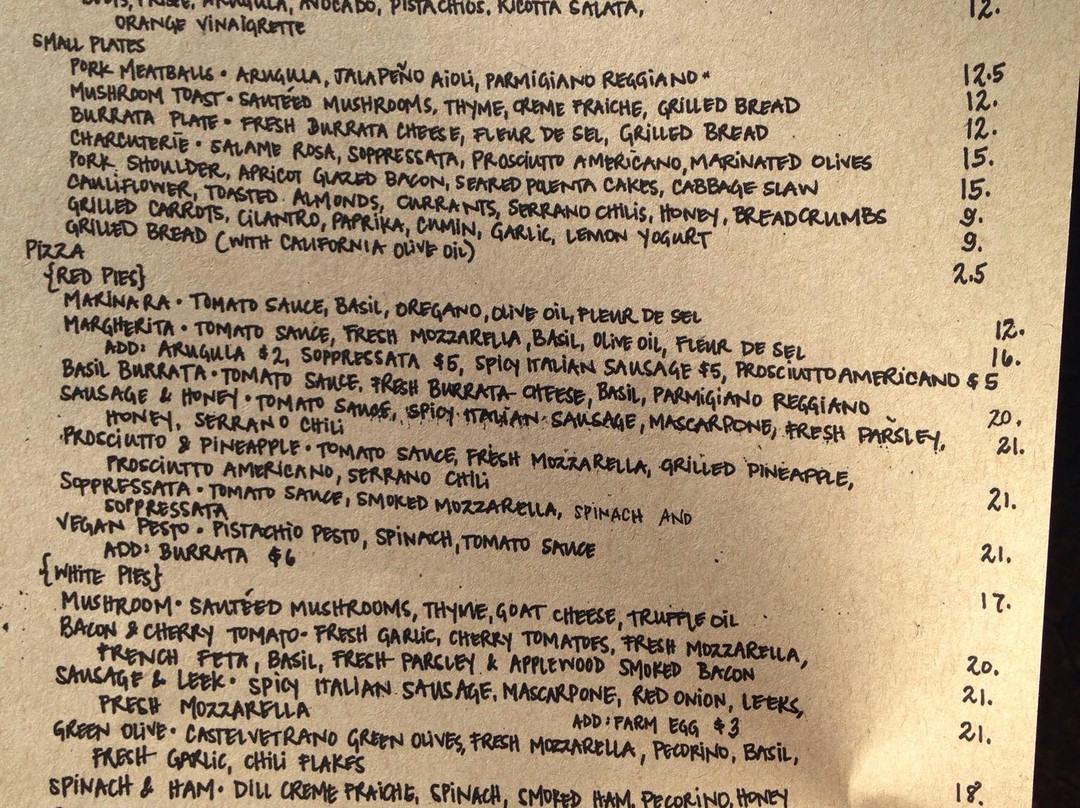 FRISÉE, ARUGULA, AVOCADO, PISTACHIOS, RICOTTA SALATA, 12.
ORANGE VINAIGRETTE
SMALL PLATES
PORK MEATBALLS • ARUGULA, JALAPEÑO AIOLI, PARMIGIANO REGGIANO* 12.5
MUSHROOM TOAST • SAUTÉED MUSHROOMS, THYME, CREME FRAICHE, GRILLED BREAD 12.
BURRATA PLATE • FRESH BURRATA CHEESE, FLEUR DE SEL, GRILLED BREAD 12.
CHARCUTERIE • SALAME ROSA, SOPPRESSATA, PROSCIUTTO AMERICANO, MARINATED OLIVES 15.
PORK SHOULDER, APRICOT GLAZED BACON, SEARED POLENTA CAKES, CABBAGE SLAW 15.
CAULIFLOWER, TOASTED ALMONDS, CURRANTS, SERRANO CHILIS, HONEY, BREADCRUMBS 9.
GRILLED CARROTS, CILANTRO, PAPRIKA, CUMIN, GARLIC, LEMON YOGURT 9.
GRILLED BREAD (WITH CALIFORNIA OLIVE OIL) 2.5
PIZZA
{RED PIES}
MARINARA • TOMATO SAUCE, BASIL, OREGANO, OLIVE OIL, FLEUR DE SEL 12.
MARGHERITA • TOMATO SAUCE, FRESH MOZZARELLA, BASIL, OLIVE OIL, FLEUR DE SEL 16.
ADD: ARUGULA $2, SOPPRESSATA $5, SPICY ITALIAN SAUSAGE $5, PROSCIUTTO AMERICANO $5
BASIL BURRATA • TOMATO SAUCE, FRESH BURRATA CHEESE, BASIL, PARMIGIANO REGGIANO 20.
SAUSAGE & HONEY • TOMATO SAUCE, SPICY ITALIAN SAUSAGE, MASCARPONE, FRESH PARSLEY, 21.
HONEY, SERRANO CHILI
PROSCIUTTO & PINEAPPLE • TOMATO SAUCE, FRESH MOZZARELLA, GRILLED PINEAPPLE, 21.
PROSCIUTTO AMERICANO, SERRANO CHILI
SOPPRESSATA • TOMATO SAUCE, SMOKED MOZZARELLA, SPINACH AND 21.
SOPPRESSATA
VEGAN PESTO • PISTACHIO PESTO, SPINACH, TOMATO SAUCE 17.
ADD: BURRATA $6
{WHITE PIES}
MUSHROOM • SAUTÉED MUSHROOMS, THYME, GOAT CHEESE, TRUFFLE OIL 20.
BACON & CHERRY TOMATO • FRESH GARLIC, CHERRY TOMATOES, FRESH MOZZARELLA, 21.
FRENCH FETA, BASIL, FRESH PARSLEY & APPLEWOOD SMOKED BACON
SAUSAGE & LEEK • SPICY ITALIAN SAUSAGE, MASCARPONE, RED ONION, LEEKS, 21.
FRESH MOZZARELLA ADD: FARM EGG $3
GREEN OLIVE • CASTELVETRANO GREEN OLIVES, FRESH MOZZARELLA, PECORINO, BASIL, 18.
FRESH GARLIC, CHILI FLAKES
SPINACH & HAM • DILL CREME FRAICHE, SPINACH, SMOKED HAM, PECORINO, HONEY